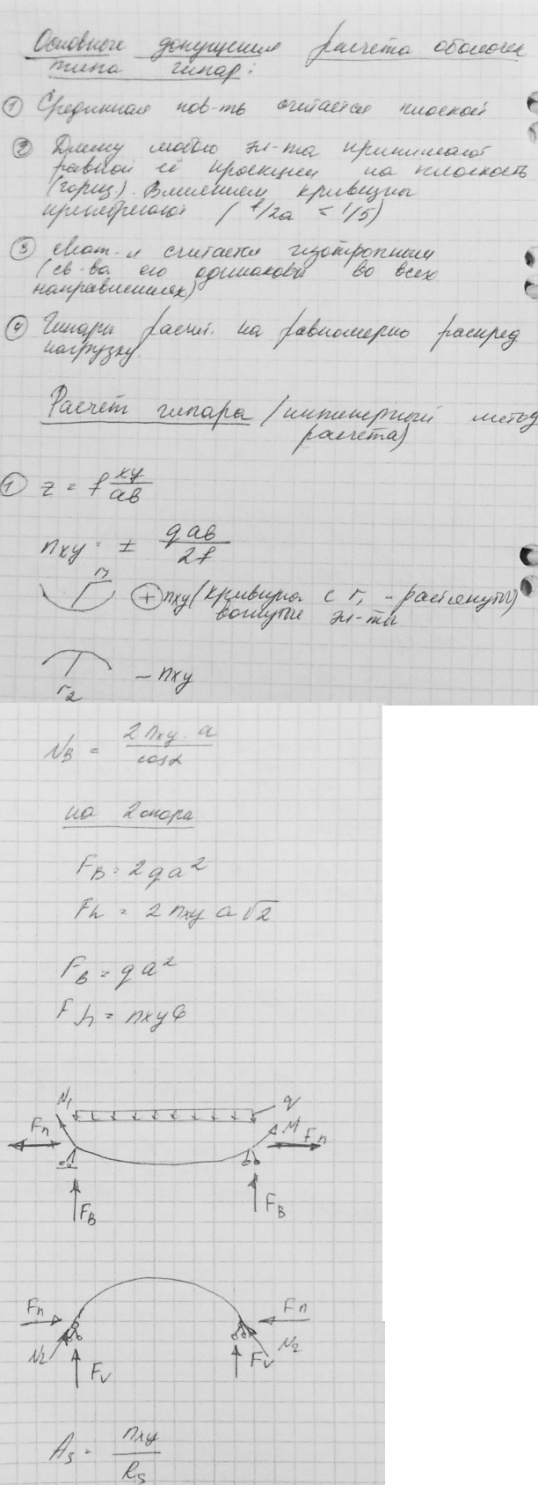 Основные допущения расчета оболочек
типа гипар:
① Срединная пов-ть считается плоской
② Длину любого эл-та принимают
равной её проекции на плоскость
(гориз). Влиянием кривизны
пренебрегают (f/2a = 1/5)
③ Мат-л считается изотропным
(св-ва его одинаковы во всех
направлениях)
④ Гипары расчит. на равномерно распред
нагрузку.
Расчёт гипара (инженерный метод
расчета)
① z = f xy/ab
nxy = ± qab/2f
r₁ ⊕ nxy (кривизна с r₁ - растянуты)
вогнутые эл-ты
r₂ - nxy
Nв = 2 nxy · a/cosα
на 2 опора
Fв = 2qa²
Fh = 2 nxy a√2
Fв = qa²
Fh = nxy
N₁ q
Fn N₁ Fn
Fв Fв
Fn Fn
N₂ N₂
Fv Fv
As = nxy/Rs